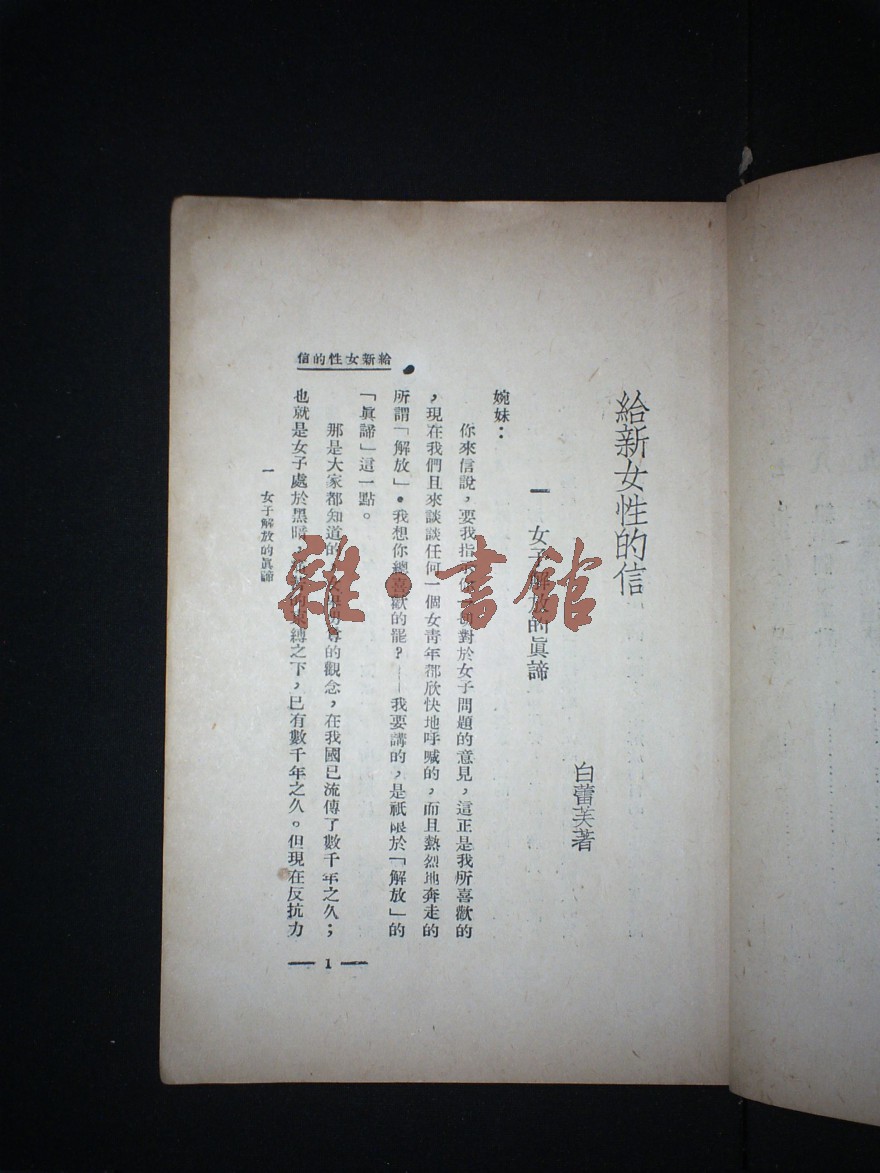 給新女性的信
白蕾芙著
一 女子解放的眞諦
婉妹：
你來信說，要我指 對於女子問題的意見，這正是我所喜歡的
，現在我們且來談談任何一個女靑年都欣快地呼喊的，而且熱烈地奔走的
所謂「解放」。我想你總喜歡的罷？——我要講的，是祇限於「解放」的
「眞諦」這一點。
那是大家都知道的， 的觀念，在我國已流傳了數千年之久；
也就是女子處於黑暗， 縛之下，已有數千年之久。但現在反抗力
給新女性的信
一 女子解放的眞諦
— 1 —
雜·書館